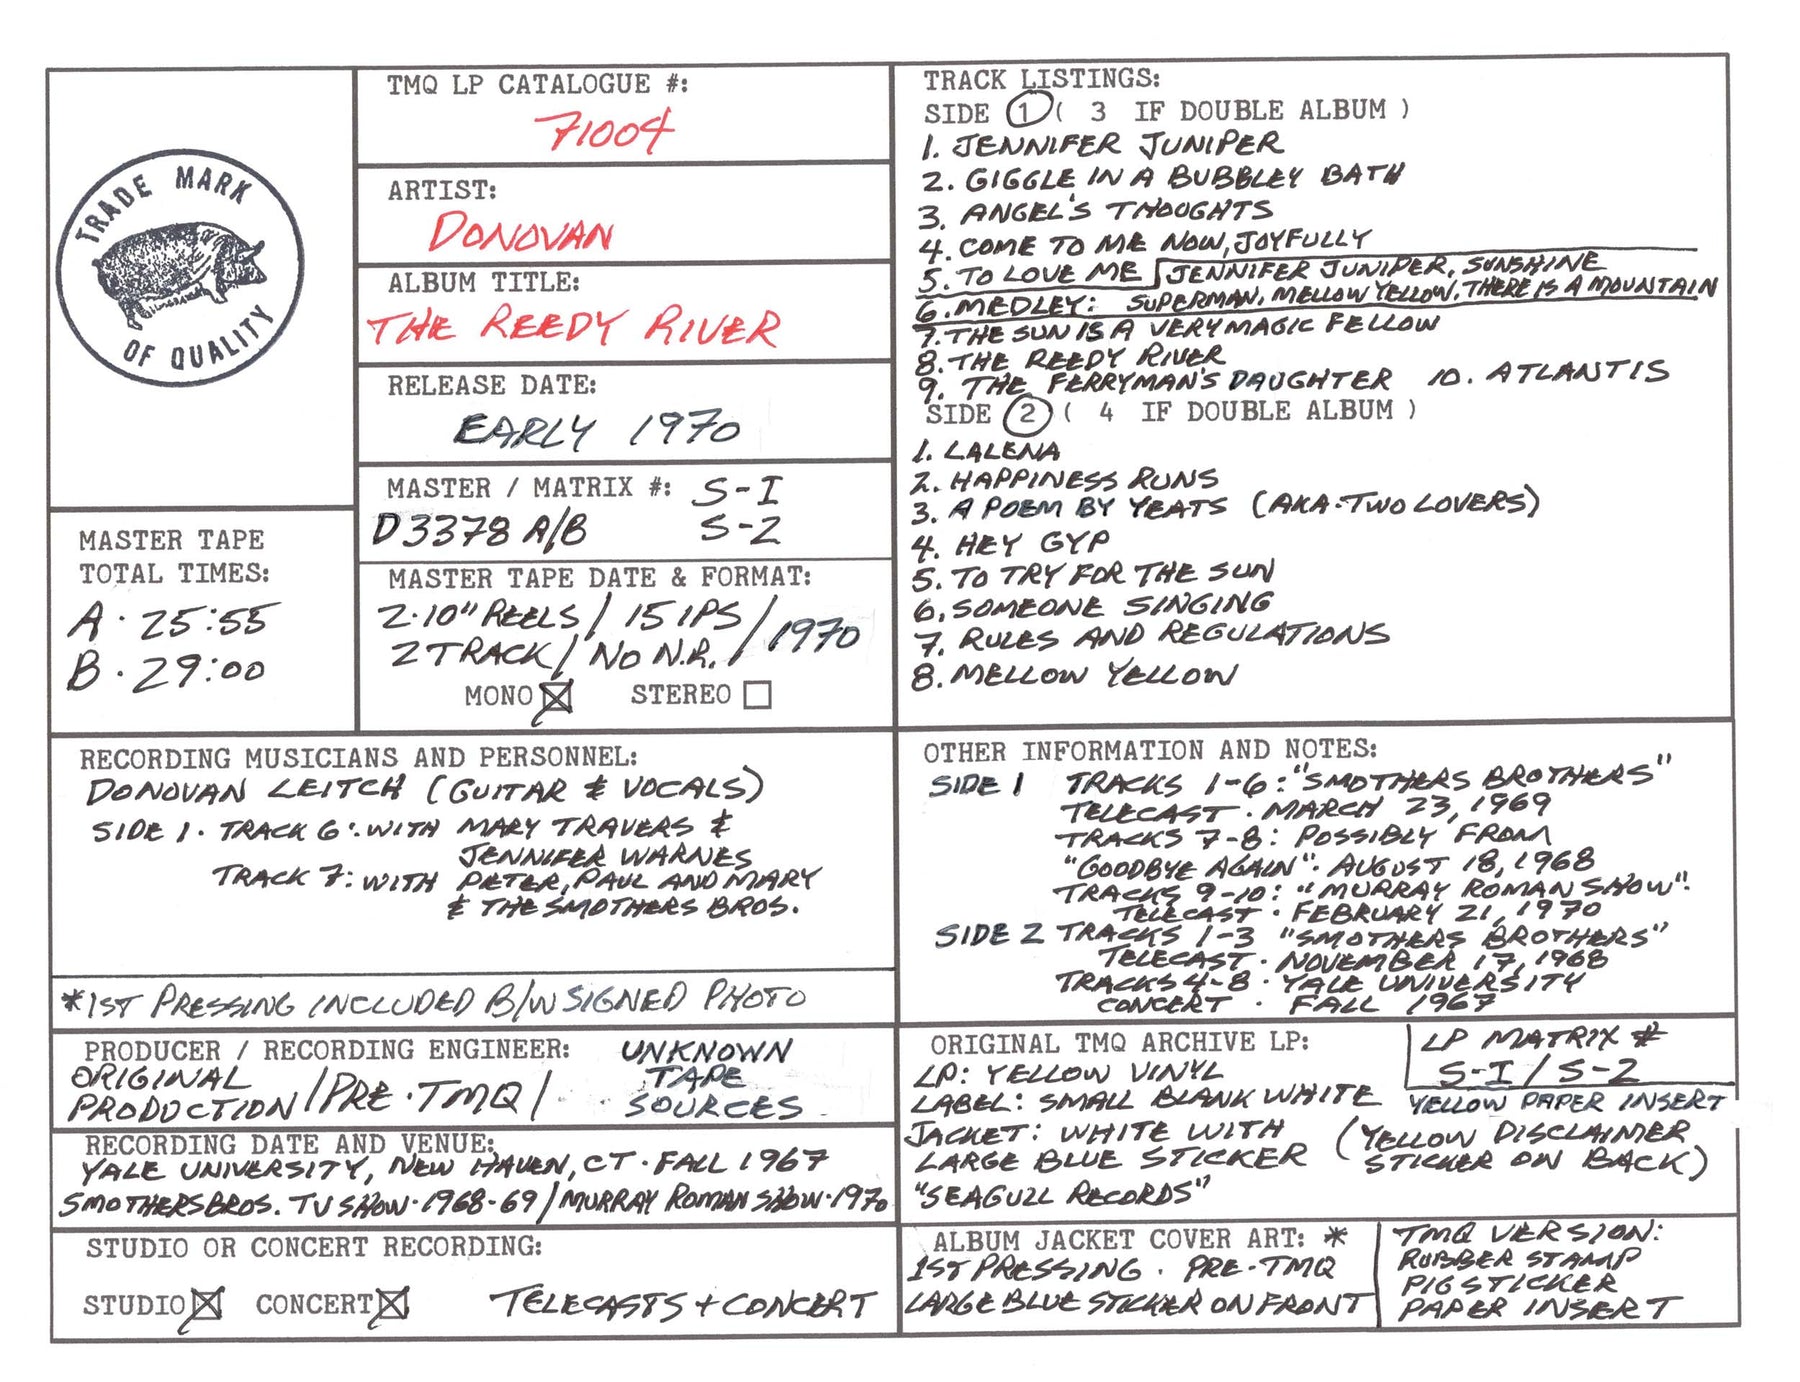 TRADE MARK
OF QUALITY
TMQ LP CATALOGUE #:
71004
ARTIST:
DONOVAN
ALBUM TITLE:
THE REEDY RIVER
RELEASE DATE:
EARLY 1970
MASTER / MATRIX #: S-I
D3378 A/B S-2
MASTER TAPE
TOTAL TIMES:
A · 25:55
B · 29:00
MASTER TAPE DATE & FORMAT:
2·10" REELS / 15 IPS / 1970
2 TRACK / NO N.R. /
MONO STEREO
TRACK LISTINGS:
SIDE 1 ( 3 IF DOUBLE ALBUM )
1. JENNIFER JUNIPER
2. GIGGLE IN A BUBBLEY BATH
3. ANGEL'S THOUGHTS
4. COME TO ME NOW, JOYFULLY
5. TO LOVE ME JENNIFER JUNIPER, SUNSHINE
6. MEDLEY: SUPERMAN, MELLOW YELLOW, THERE IS A MOUNTAIN
7. THE SUN IS A VERY MAGIC FELLOW
8. THE REEDY RIVER
9. THE FERRYMAN'S DAUGHTER 10. ATLANTIS
SIDE 2 ( 4 IF DOUBLE ALBUM )
1. LALENA
2. HAPPINESS RUNS
3. A POEM BY YEATS (AKA·TWO LOVERS)
4. HEY GYP
5. TO TRY FOR THE SUN
6. SOMEONE SINGING
7. RULES AND REGULATIONS
8. MELLOW YELLOW
RECORDING MUSICIANS AND PERSONNEL:
DONOVAN LEITCH (GUITAR & VOCALS)
SIDE 1 · TRACK 6: WITH MARY TRAVERS &
JENNIFER WARNES
TRACK 7: WITH PETER, PAUL AND MARY
& THE SMOTHERS BROS.
*1ST PRESSING INCLUDED B/W SIGNED PHOTO
OTHER INFORMATION AND NOTES:
SIDE 1 TRACKS 1-6: "SMOTHERS BROTHERS"
TELECAST · MARCH 23, 1969
TRACKS 7-8: POSSIBLY FROM
"GOODBYE AGAIN" · AUGUST 18, 1968
TRACKS 9-10: "MURRAY ROMAN SHOW".
TELECAST · FEBRUARY 21, 1970
SIDE 2 TRACKS 1-3 "SMOTHERS BROTHERS"
TELECAST · NOVEMBER 17, 1968
TRACKS 4-8 · YALE UNIVERSITY
CONCERT · FALL 1967
PRODUCER / RECORDING ENGINEER: UNKNOWN
ORIGINAL PRODUCTION / PRE·TMQ / TAPE
SOURCES
RECORDING DATE AND VENUE:
YALE UNIVERSITY, NEW HAVEN, CT · FALL 1967
SMOTHERS BROS. TV SHOW · 1968-69 / MURRAY ROMAN SHOW · 1970
STUDIO OR CONCERT RECORDING:
STUDIO CONCERT TELECASTS + CONCERT
ORIGINAL TMQ ARCHIVE LP: LP MATRIX #
LP: YELLOW VINYL S-I / S-2
LABEL: SMALL BLANK WHITE YELLOW PAPER INSERT
JACKET: WHITE WITH (YELLOW DISCLAIMER
LARGE BLUE STICKER STICKER ON BACK)
"SEAGULL RECORDS"
ALBUM JACKET COVER ART: *
1ST PRESSING · PRE-TMQ
LARGE BLUE STICKER ON FRONT
TMQ VERSION:
RUBBER STAMP
PIG STICKER
PAPER INSERT